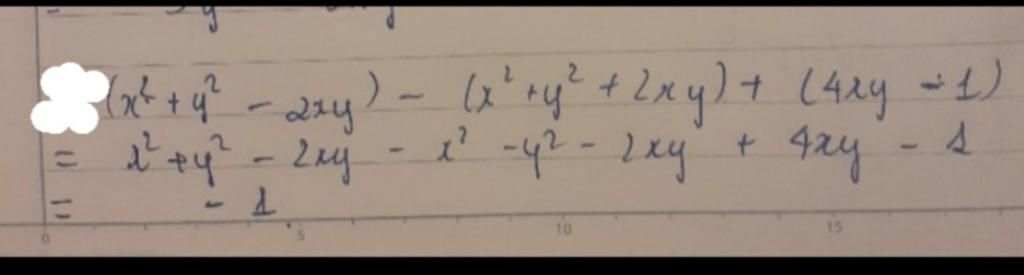 (x² + y² - 2xy) - (x² + y² + 2xy) + (4xy - 1)
= x² + y² - 2xy - x² - y² - 2xy + 4xy - 1
= - 1
0 5 10 15